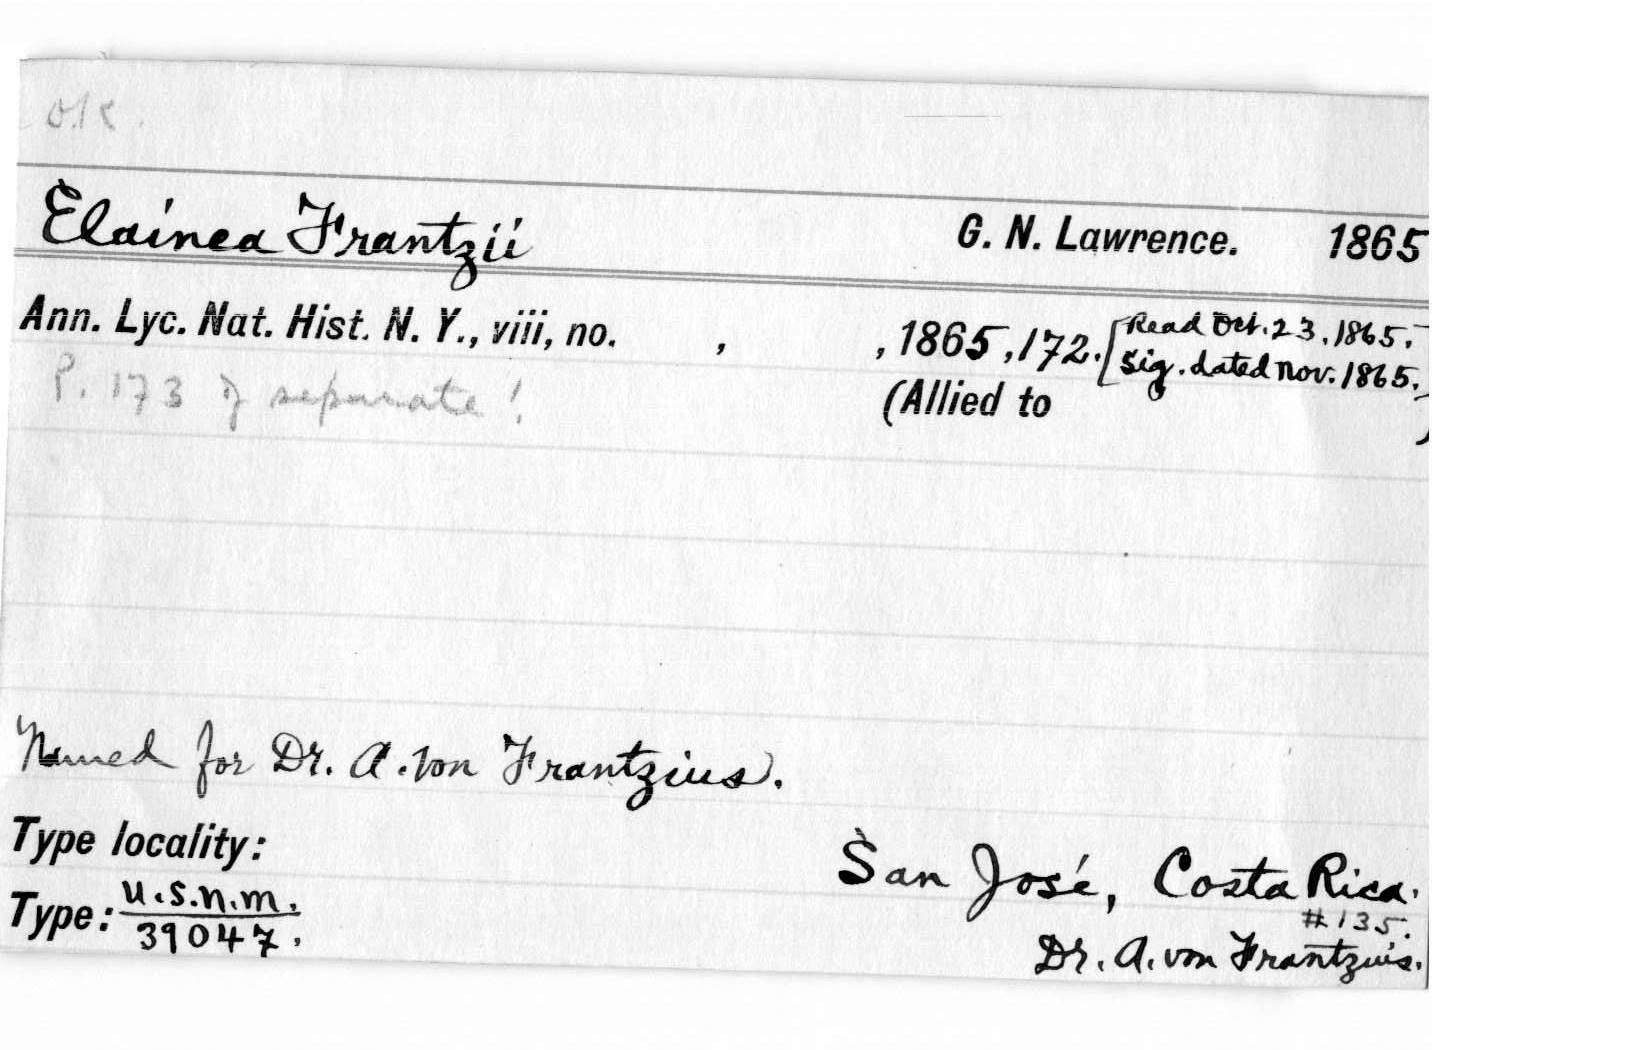 O.K.
Elainea Frantzii G. N. Lawrence. 1865
Ann. Lyc. Nat. Hist. N. Y., viii, no. , , 1865, 172. [Read Oct. 23, 1865.
Sig. dated Nov. 1865.
P. 173 of separate!
(Allied to )
Named for Dr. A. von Frantzius.
Type locality: San José, Costa Rica.
Type: U.S.N.M. #135.
39047. Dr. A. von Frantzius.